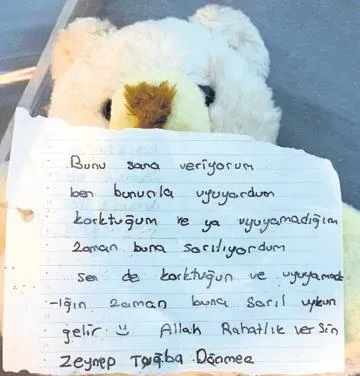 Bunu sana veriyorum
ben bununla uyuyordum
korktuğum ve ya uyuyamadığım
zaman buna sarılıyordum
sen de korktuğun ve uyuyamad
-ığın zaman buna sarıl uykun
gelir Allah Rahatlık versin
Zeynep Tuğba